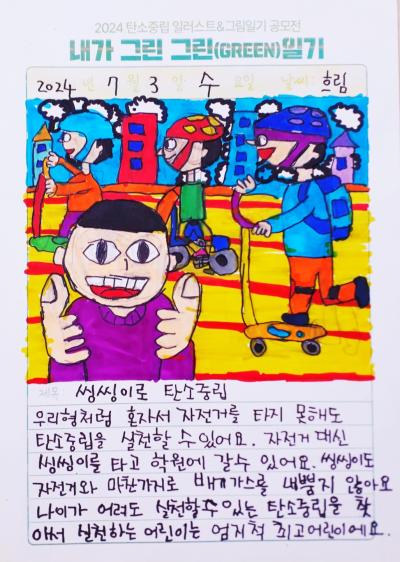 2024 탄소중립 일러스트&그림일기 공모전
내가 그린 그린(GREEN)일기
2024 년 7 월 3 일 수 요일 날씨: 흐림
제목 씽씽이로 탄소중립
우리형처럼 혼자서 자전거를 타지 못해도
탄소중립을 실천할 수 있어요. 자전거 대신
씽씽이를 타고 학원에 갈수 있어요. 씽씽이도
자전거와 마찬가지로 배기가스를 내뿜지 않아요
나이가 어려도 실천할수 있는 탄소중립을 찾
아서 실천하는 어린이는 엄지척 최고어린이에요.